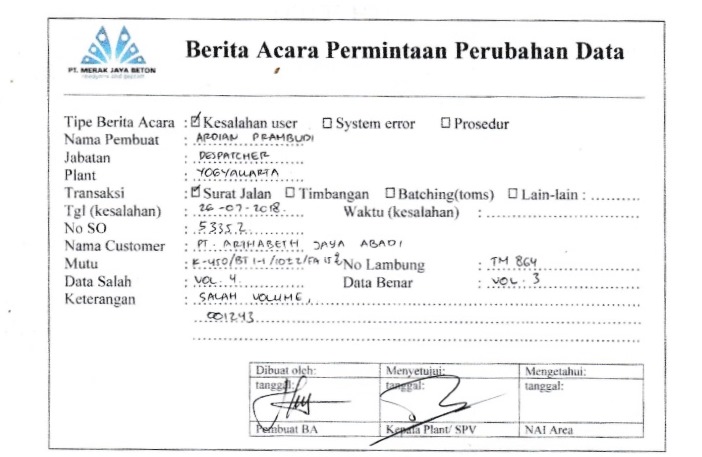 PT. MERAK JAYA BETON
Berita Acara Permintaan Perubahan Data
Tipe Berita Acara : ☑ Kesalahan user ☐ System error ☐ Prosedur
Nama Pembuat : ARDIAN PRAMBUDI
Jabatan : DESPATCHER
Plant : YOGYAKARTA
Transaksi : ☑ Surat Jalan ☐ Timbangan ☐ Batching(toms) ☐ Lain-lain : ..........
Tgl (kesalahan) : 26-07-2018 Waktu (kesalahan) : ..........
No SO : 53352
Nama Customer : PT. ARTHABETH JAYA ABADI
Mutu : K-450/BT 1-1/1022/FA No Lambung : TM 864
Data Salah : VOL. 4 Data Benar : VOL. 3
Keterangan : SALAH VOLUME,
001243
Dibuat oleh: Menyetujui: Mengetahui:
tanggal: tanggal: tanggal:
Pembuat BA Kepala Plant/ SPV NAI Area